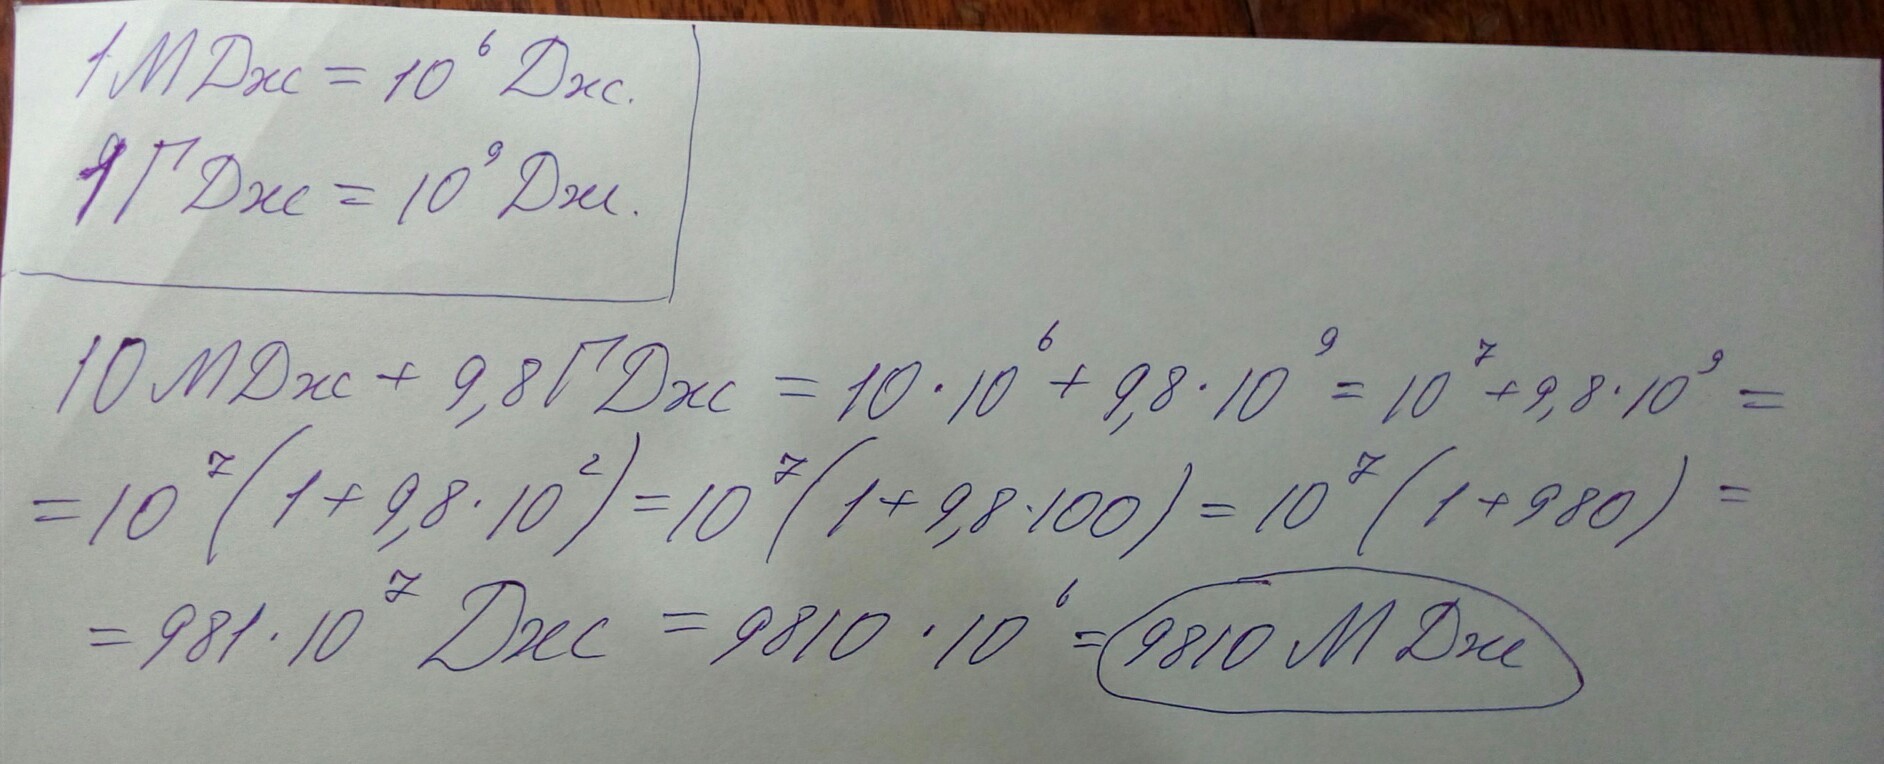 1 М Дж = 10⁶ Дж.
1 Г Дж = 10⁹ Дж.
10 М Дж + 9,8 Г Дж = 10 · 10⁶ + 9,8 · 10⁹ = 10⁷ + 9,8 · 10⁹ =
= 10⁷ (1 + 9,8 · 10²) = 10⁷ (1 + 9,8 · 100) = 10⁷ (1 + 980) =
= 981 · 10⁷ Дж = 9810 · 10⁶ = 9810 М Дж